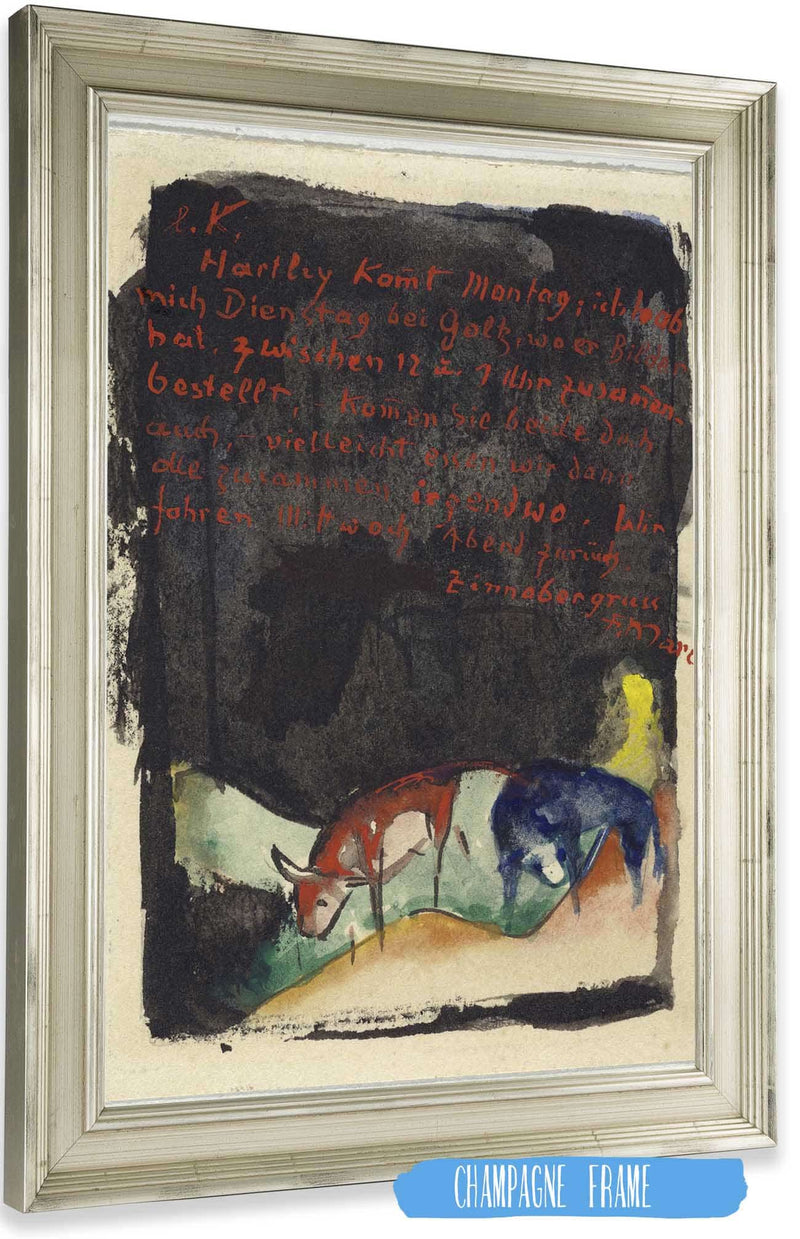 l. K.
Hartley kom̄t Montag; ich hab
mich Dienstag bei Goltz, wo er Bilder
hat, zwischen 12 u. 1 Uhr zusam̄en-
bestellt, – kom̄en Sie beide doch
auch, – vielleicht essen wir dann
alle zusammen irgendwo. Wir
fahren Mittwoch Abend zurück.
Zinnobergruss
F. Marc
CHAMPAGNE FRAME